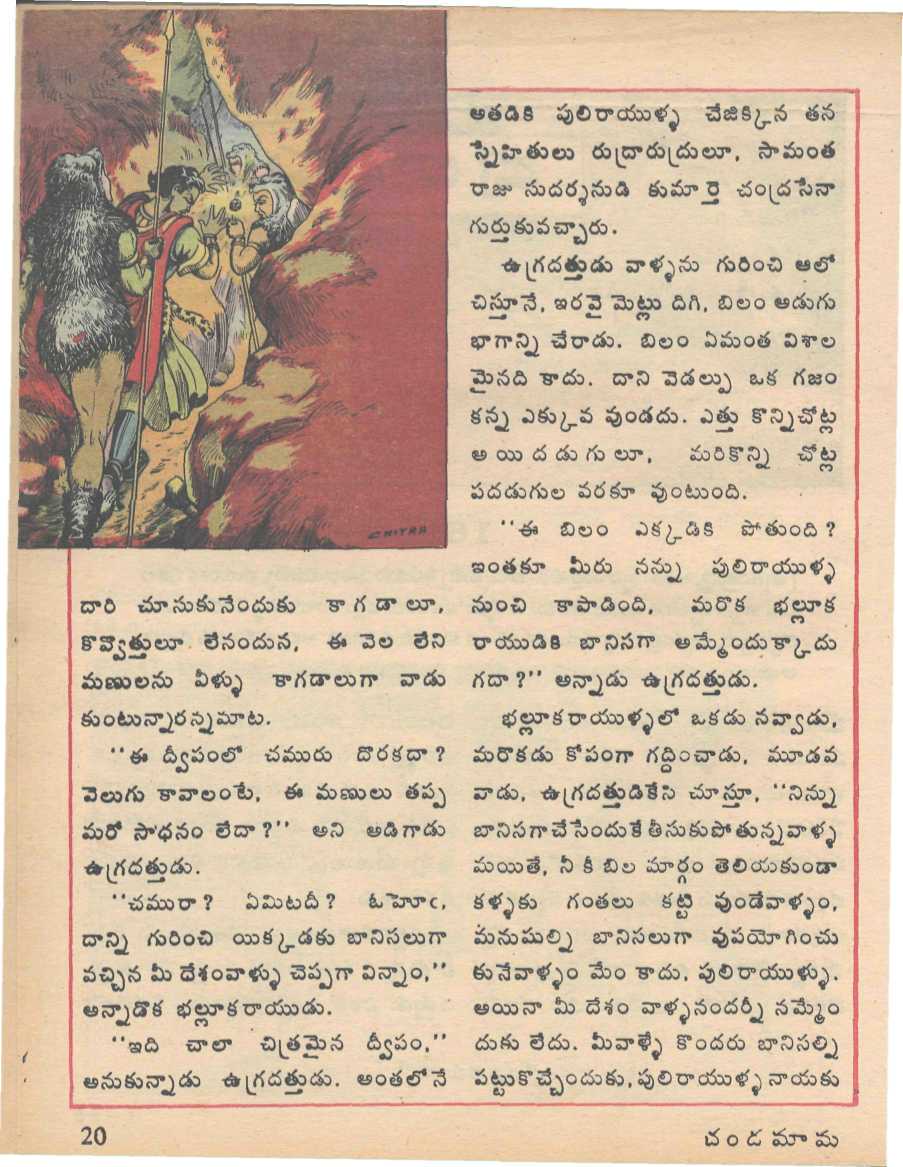 CHITRA
దారి చూసుకునేందుకు కాగడాలూ,
కొవ్వొత్తులూ లేనందున, ఈ వెల లేని
మణులను వీళ్ళు కాగడాలుగా వాడు
కుంటున్నారన్నమాట.
‘‘ఈ ద్వీపంలో చమురు దొరకదా?
వెలుగు కావాలంటే, ఈ మణులు తప్ప
మరో సాధనం లేదా?’’ అని అడిగాడు
ఉగ్రదత్తుడు.
‘‘చమురా? ఏమిటదీ? ఓహూఁ,
దాన్ని గురించి యిక్కడకు బానిసలుగా
వచ్చిన మీ దేశంవాళ్ళు చెప్పగా విన్నాం,’’
అన్నాడొక భల్లూకరాయుడు.
‘‘ఇది చాలా చిత్రమైన ద్వీపం,’’
అనుకున్నాడు ఉగ్రదత్తుడు. అంతలోనే
అతడికి పులిరాయుళ్ళ చేజిక్కిన తన
స్నేహితులు రుద్రారుద్రులూ, సామంత
రాజు సుదర్శనుడి కుమార్తె చంద్రసేనా
గుర్తుకువచ్చారు.
ఉగ్రదత్తుడు వాళ్ళను గురించి ఆలో
చిస్తూనే, ఇరవై మెట్లు దిగి, బిలం అడుగు
భాగాన్ని చేరాడు. బిలం ఏమంత విశాల
మైనది కాదు. దాని వెడల్పు ఒక గజం
కన్న ఎక్కువ వుండదు. ఎత్తు కొన్నిచోట్ల
అయిదడుగులూ, మరికొన్ని చోట్ల
పదడుగుల వరకూ వుంటుంది.
‘‘ఈ బిలం ఎక్కడికి పోతుంది?
ఇంతకూ మీరు నన్ను పులిరాయుళ్ళ
నుంచి కాపాడింది, మరొక భల్లూక
రాయుడికి బానిసగా అమ్మేందుక్కాదు
గదా?’’ అన్నాడు ఉగ్రదత్తుడు.
భల్లూకరాయుళ్ళలో ఒకడు నవ్వాడు,
మరొకడు కోపంగా గద్దించాడు, మూడవ
వాడు, ఉగ్రదత్తుడికేసి చూస్తూ, ‘‘నిన్ను
బానిసగా చేసేందుకే తీసుకుపోతున్నవాళ్ళ
మయితే, నీ కీ బిల మార్గం తెలియకుండా
కళ్ళకు గంతలు కట్టి వుండేవాళ్ళం,
మనుషుల్ని బానిసలుగా వుపయోగించు
కునేవాళ్ళం మేం కాదు. పులిరాయుళ్ళు.
అయినా మీ దేశం వాళ్ళనందర్నీ నమ్మేం
దుకు లేదు. మీవాళ్ళే కొందరు బానిసల్ని
పట్టుకొచ్చేందుకు, పులిరాయుళ్ళ నాయకు
20
చందమామ